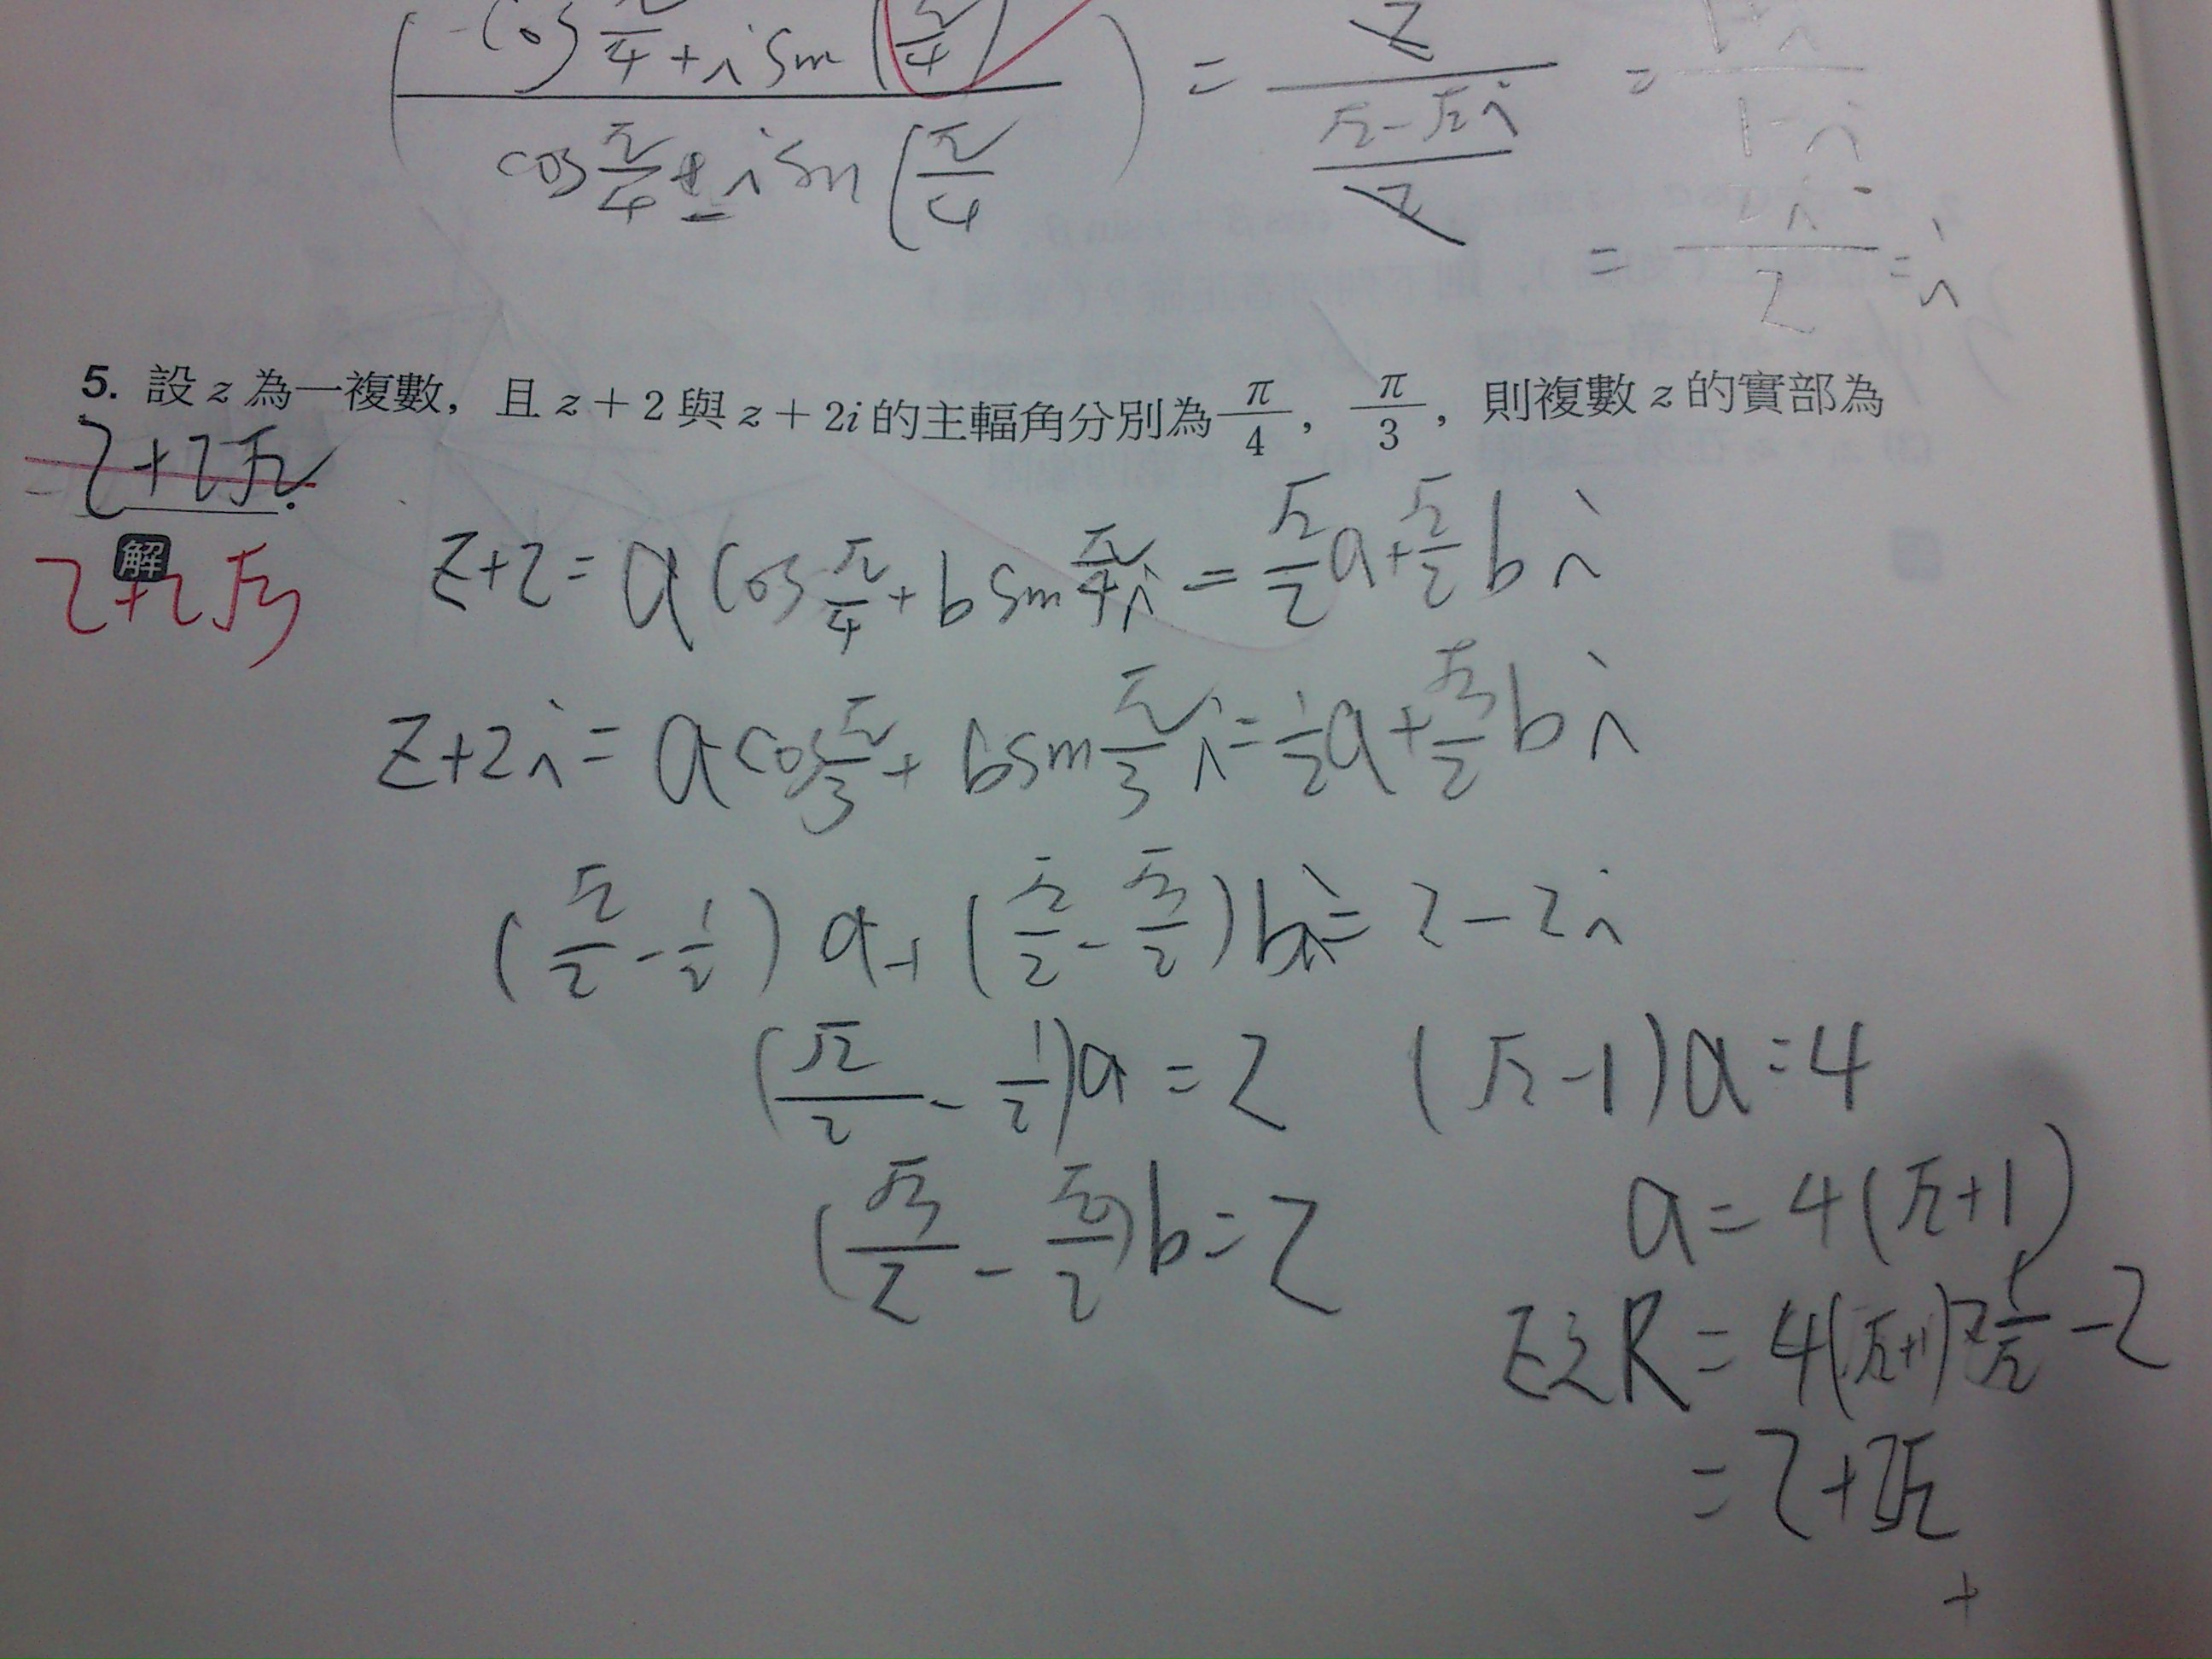 (-cos π/4 + i sin (π/4) / cos π/4 ± i sin (π/4) = 2 / (√2-√2i / 2) = 1+i / 1-i
= 2i / 2 = i
5. 設 z 為一複數，且 z + 2 與 z + 2i 的主輻角分別為 π/4，π/3，則複數 z 的實部為
2+2√2.
解
2+2√3
z+2 = a cos π/4 + b sin π/4 i = √2/2 a + √2/2 b i
z+2i = a cos π/3 + b sin π/3 i = 1/2 a + √3/2 b i
(√2/2 - 1/2) a + (√2/2 - √3/2) bi = 2 - 2i
(√2/2 - 1/2)a = 2 (√2-1)a=4
a = 4(√2+1)
(√3/2 - √2/2)b = 2
z之R = 4(√2+1) × 1/√2 - 2
= 2+2√2